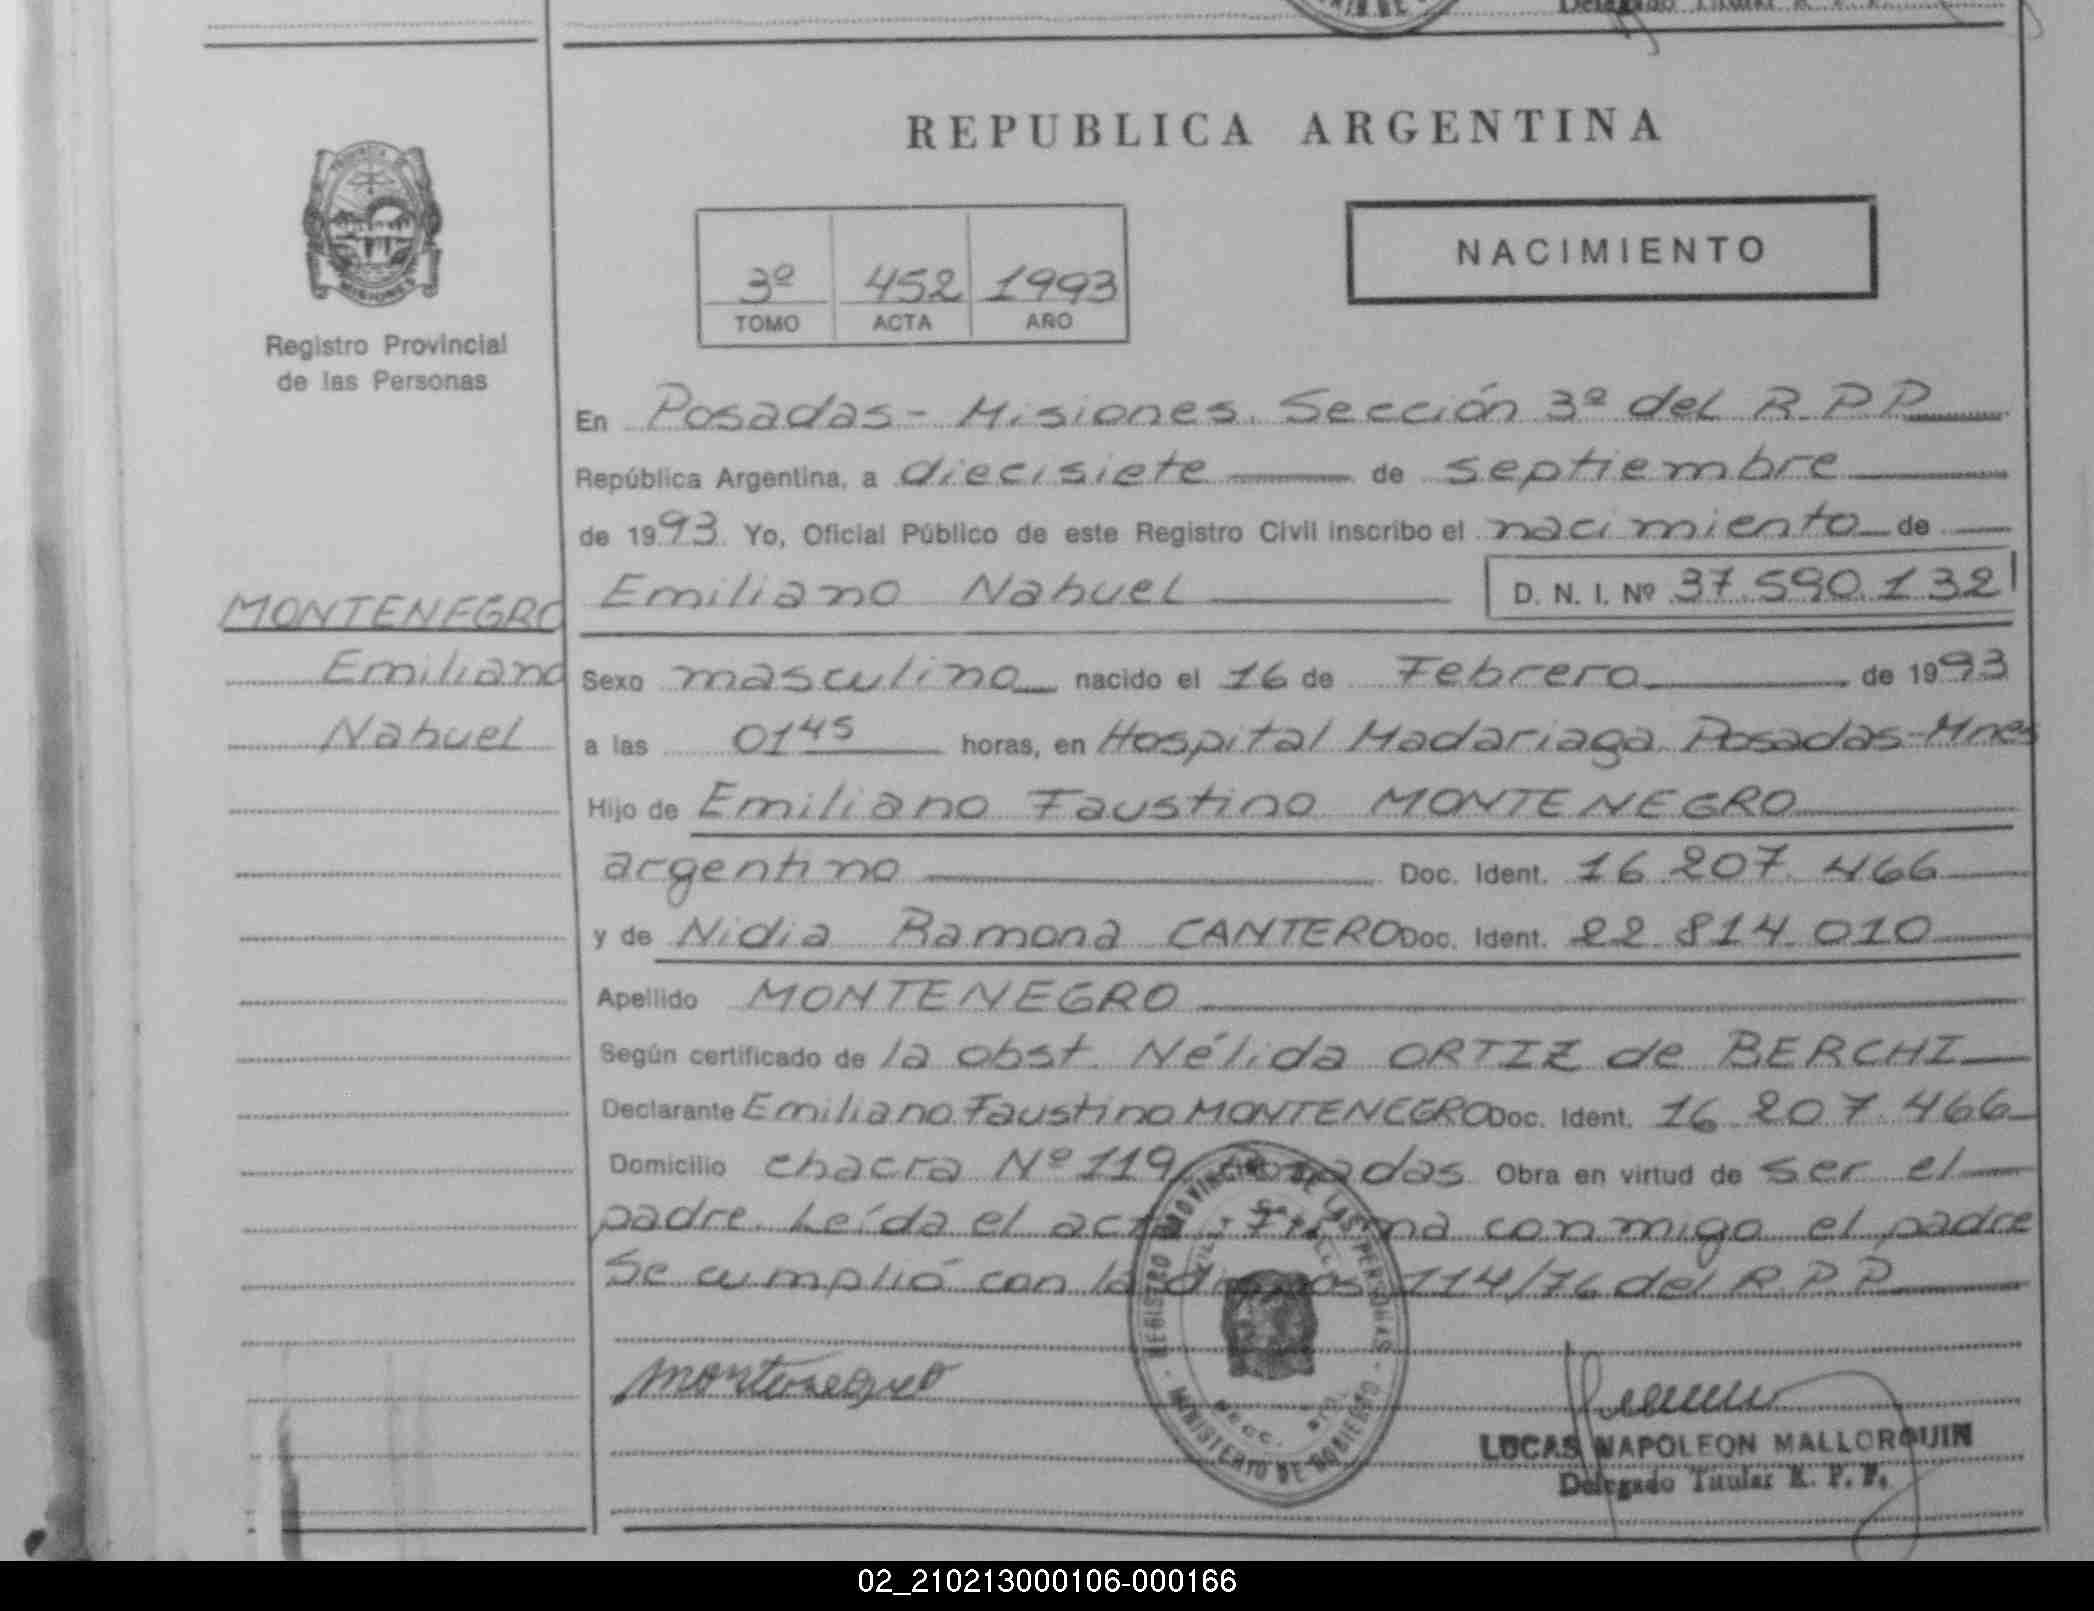 Delegado Titular R. P. P.
REPUBLICA ARGENTINA
NACIMIENTO
3º 452 1993
TOMO ACTA AÑO
MISIONES
Registro Provincial
de las Personas
En Posadas - Misiones. Sección 3ª del R.P.P.
República Argentina, a diecisiete de septiembre
de 1993. Yo, Oficial Público de este Registro Civil inscribo el nacimiento de
MONTENEGRO
Emiliano Nahuel D. N. I. Nº 37.590.132
Emiliano
Sexo masculino nacido el 16 de Febrero de 1993
Nahuel
a las 01 45 horas, en Hospital Madariaga. Posadas-Mnes
Hijo de Emiliano Faustino MONTENEGRO
argentino Doc. Ident. 16.207.466
y de Nidia Ramona CANTERO Doc. Ident. 22.814.010
Apellido MONTENEGRO
Según certificado de la obst. Nélida ORTIZ de BERCHI
Declarante Emiliano Faustino MONTENEGRO Doc. Ident. 16.207.466
Domicilio chacra Nº 119, Posadas. Obra en virtud de ser el
padre. Leída el acta. Firma conmigo el padre
Se cumplió con la dispos. 114/76 del R.P.P.
montenegro
REGISTRO PROVINCIAL DE LAS PERSONAS
MINISTERIO DE GOBIERNO
LUCAS NAPOLEON MALLORQUIN
Delegado Titular R. P. P.
02_210213000106-000166